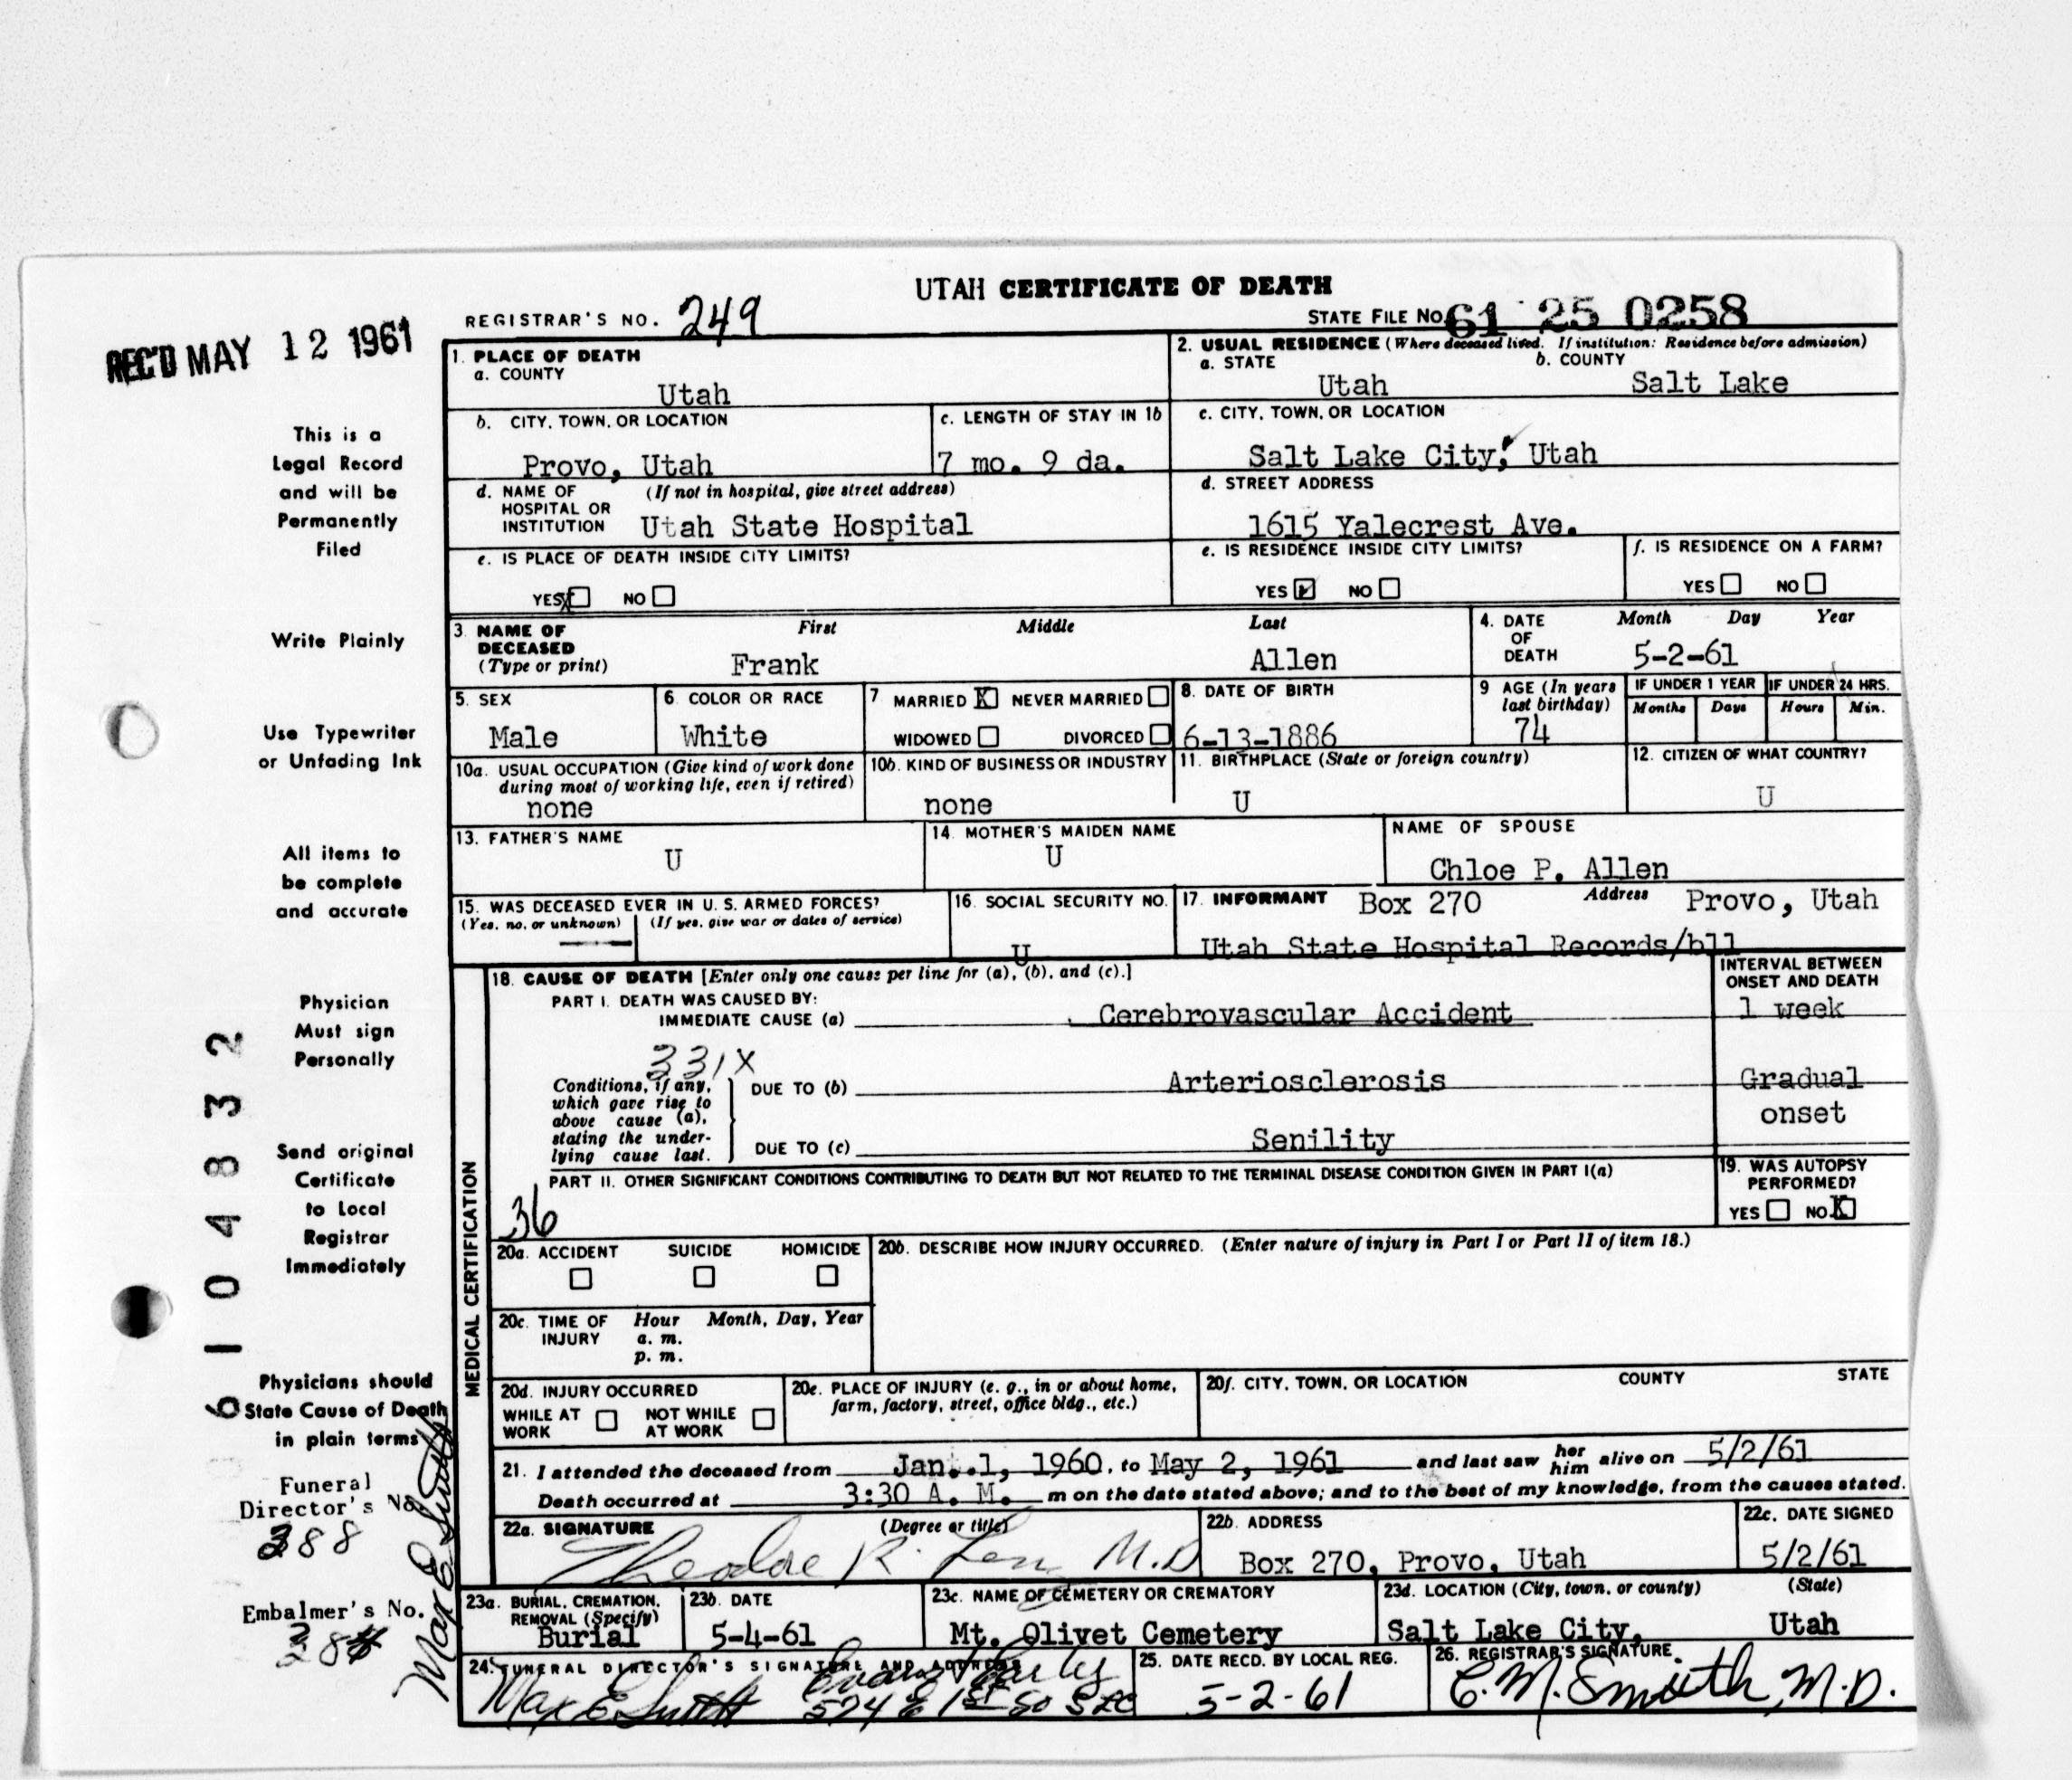 UTAH CERTIFICATE OF DEATH
REGISTRAR'S NO. 249
STATE FILE NO. 61 25 0258
REC'D MAY 12 1961
1. PLACE OF DEATH
a. COUNTY
Utah
2. USUAL RESIDENCE (Where deceased lived. If institution: Residence before admission)
a. STATE
Utah
b. COUNTY
Salt Lake
b. CITY, TOWN, OR LOCATION
Provo, Utah
c. LENGTH OF STAY IN 1b
7 mo. 9 da.
c. CITY, TOWN, OR LOCATION
Salt Lake City, Utah
d. NAME OF HOSPITAL OR INSTITUTION (If not in hospital, give street address)
Utah State Hospital
d. STREET ADDRESS
1615 Yalecrest Ave.
e. IS PLACE OF DEATH INSIDE CITY LIMITS?
YES X NO
e. IS RESIDENCE INSIDE CITY LIMITS?
YES NO
f. IS RESIDENCE ON A FARM?
YES NO
3. NAME OF DECEASED (Type or print)
First Middle Last
Frank Allen
4. DATE OF DEATH
Month Day Year
5-2-61
5. SEX
Male
6. COLOR OR RACE
White
7 MARRIED X NEVER MARRIED
WIDOWED DIVORCED
8. DATE OF BIRTH
6-13-1886
9 AGE (In years last birthday)
74
IF UNDER 1 YEAR
Months Days
IF UNDER 24 HRS.
Hours Min.
10a. USUAL OCCUPATION (Give kind of work done during most of working life, even if retired)
none
10b. KIND OF BUSINESS OR INDUSTRY
none
11. BIRTHPLACE (State or foreign country)
U
12. CITIZEN OF WHAT COUNTRY?
U
13. FATHER'S NAME
U
14. MOTHER'S MAIDEN NAME
U
NAME OF SPOUSE
Chloe P. Allen
15. WAS DECEASED EVER IN U. S. ARMED FORCES?
(Yes, no, or unknown) (If yes, give war or dates of service)
16. SOCIAL SECURITY NO.
U
17. INFORMANT Box 270 Address Provo, Utah
Utah State Hospital Records/bll
MEDICAL CERTIFICATION
18. CAUSE OF DEATH [Enter only one cause per line for (a), (b), and (c).]
INTERVAL BETWEEN ONSET AND DEATH
PART I. DEATH WAS CAUSED BY:
IMMEDIATE CAUSE (a) Cerebrovascular Accident
1 week
331X
Conditions, if any, which gave rise to above cause (a), stating the underlying cause last.
DUE TO (b) Arteriosclerosis
Gradual onset
DUE TO (c) Senility
PART II. OTHER SIGNIFICANT CONDITIONS CONTRIBUTING TO DEATH BUT NOT RELATED TO THE TERMINAL DISEASE CONDITION GIVEN IN PART I(a)
36
19. WAS AUTOPSY PERFORMED?
YES NO X
20a. ACCIDENT SUICIDE HOMICIDE
20b. DESCRIBE HOW INJURY OCCURRED. (Enter nature of injury in Part I or Part II of item 18.)
20c. TIME OF INJURY
Hour Month, Day, Year
a. m.
p. m.
20d. INJURY OCCURRED
WHILE AT WORK NOT WHILE AT WORK
20e. PLACE OF INJURY (e. g., in or about home, farm, factory, street, office bldg., etc.)
20f. CITY, TOWN, OR LOCATION COUNTY STATE
21. I attended the deceased from Jan. 1, 1960, to May 2, 1961 and last saw her him alive on 5/2/61
Death occurred at 3:30 A. M. m on the date stated above; and to the best of my knowledge, from the causes stated.
22a. SIGNATURE (Degree or title)
Theodore R. M.D
22b. ADDRESS
Box 270, Provo, Utah
22c. DATE SIGNED
5/2/61
23a. BURIAL, CREMATION, REMOVAL (Specify)
Burial
23b. DATE
5-4-61
23c. NAME OF CEMETERY OR CREMATORY
Mt. Olivet Cemetery
23d. LOCATION (City, town, or county) (State)
Salt Lake City, Utah
24. FUNERAL DIRECTOR'S SIGNATURE AND ADDRESS
Max E Smith
574 E 1st So SLC
25. DATE RECD. BY LOCAL REG.
5-2-61
26. REGISTRAR'S SIGNATURE
C. M. Smith, M.D.
This is a
Legal Record
and will be
Permanently
Filed
Write Plainly
Use Typewriter
or Unfading Ink
All items to
be complete
and accurate
Physician
Must sign
Personally
Send original
Certificate
to Local
Registrar
Immediately
Physicians should
State Cause of Death
in plain terms
6104832
Funeral
Director's No.
388
Embalmer's No.
Max E Smith